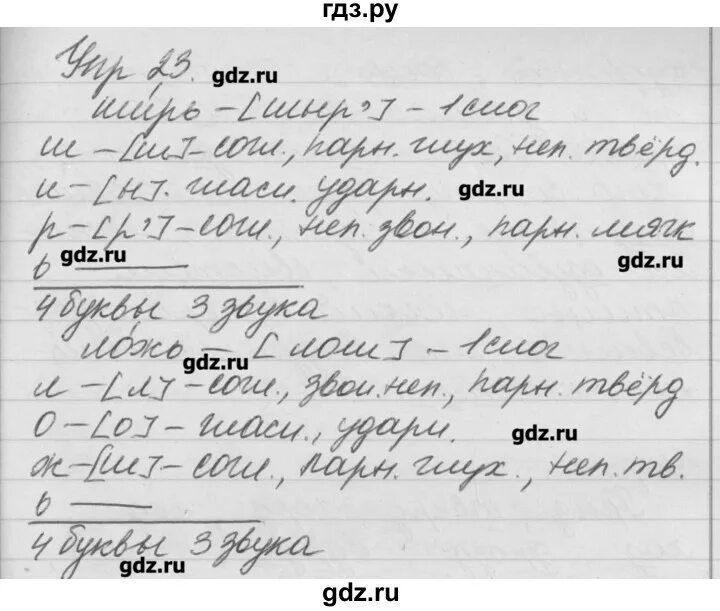 гдз.ру
Упр 23. gdz.ru
ши́рь – [шыр'] – 1 слог
ш – [ш] – согл., парн. глух, неп. твёрд.
и – [ы]. гласн. ударн. gdz.ru
р – [р'] – согл., неп. звон., парн. мягк
ь —— gdz.ru gdz.ru
4 буквы 3 звука
ло́жь – [лош] – 1 слог
gdz.ru
л – [л] – согл., звон. неп., парн. твёрд
о – [о] – гласн., ударн. gdz.ru
ж – [ш] – согл., парн. глух., неп. тв.
ь ——
4 буквы 3 звука
gdz.ru
gdz.ru